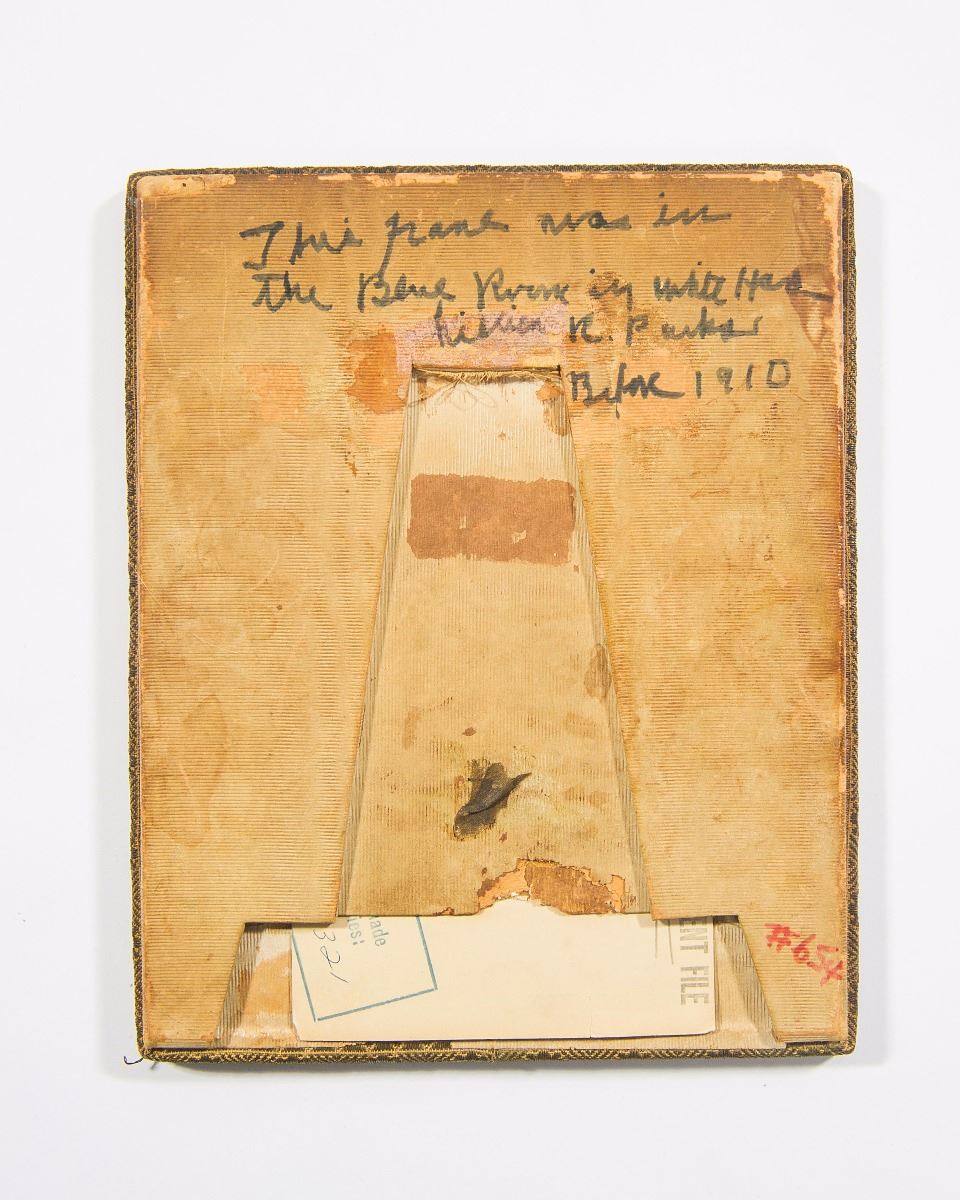 This frame was in
the Blue Room in White House
Lillian R. Parks
Before 1910
#654
ade
es:
321
ENT FILE